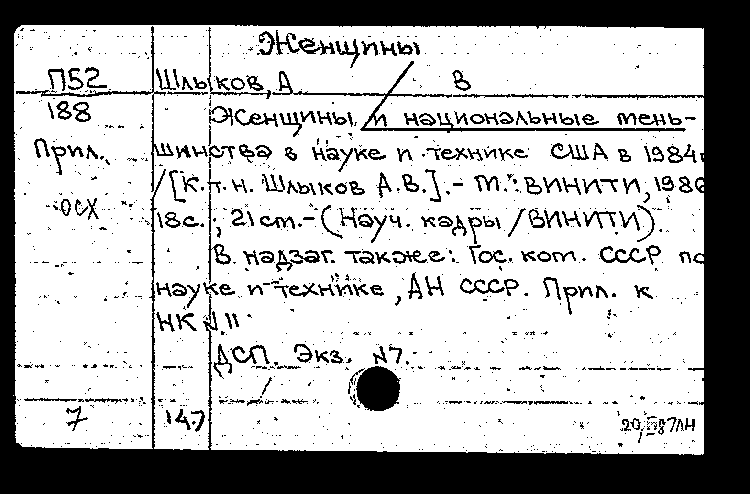 Женщины
П52 Шлыков, А В
188 Женщины и национальные мень-
Прил. шинства в науке и технике США в 1984г
/[К.т.н. Шлыков А.В.].- М.: ВИНИТИ, 1986
ОСХ 18с.; 21см.-(Науч. кадры /ВИНИТИ).
В надзаг. также: Гос. ком. СССР по
науке и технике, АН СССР. Прил. к
НК N 11
ДСП. Экз. N7.
7 147